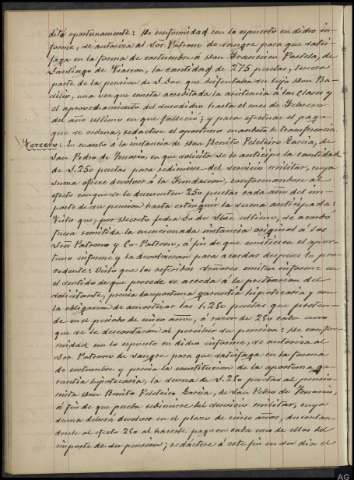 dirá oportunamente: De conformidad con lo expuesto en dicho in-
forme, se autoriza al Sor Patrono de sangre para que satis-
faga en la forma de costumbre a Don Francisco Portela, de
Santiago de Viascon, la cantidad de 275 pesetas, tercera
parte de la pensión de que disfrutaba su hijo Don Ba-
silio, una vez conste acreditada la asistencia a las clases y
el aprovechamiento del susodicho hasta el mes de Febrero
del año último en que falleció; y para efectuar el pago
que se ordena, redáctese el oportuno mandato de transferencia
Tercero: En cuanto a la instancia de Don Benito Peleteiro García, de
San Pedro de Tenorio, en que solicita se le anticipe la cantidad
de 1.250 pesetas para redimirse del servicio militar, cuya
suma ofrece devolver a la Fundación, conformándose al
efecto con que se le descuenten 250 pesetas cada año del im-
porte de su pensión hasta extinguir la suma anticipada:
Visto que, por decreto fecha de último, se acordó
fuera remitida la mencionada instancia original a los
Sres Patrono y Co-Patrono, a fin de que emitiesen el opor-
tuno informe y la devolvieran para acordar después lo pro-
cedente: Visto que los referidos Señores emiten informe en
el sentido de que procede se acceda a la pretensión del
solicitante, previa la oportuna garantía hipotecaria y con
la obligación de devolver las 1.250 pesetas que pretende
en el período de cinco años, a razón de 250 cada uno
que se le descontarán al percibir su pensión: De confor-
midad con lo expuesto en dicho informe, se autoriza al
Sor Patrono de sangre para que satisfaga en la forma
de costumbre y previa la constitución de la oportuna ga-
rantía hipotecaria, la suma de 1.250 pesetas al pensio-
nista Don Benito Peleteiro García, de San Pedro de Tenorio,
a fin de que pueda redimirse del servicio militar, cuya
suma deberá devolver en el plazo de cinco años, descontán-
dosele al efecto 250 al hacerle pago en cada uno de ellos del
importe de su pensión; redáctese a este fin en su día el
AG